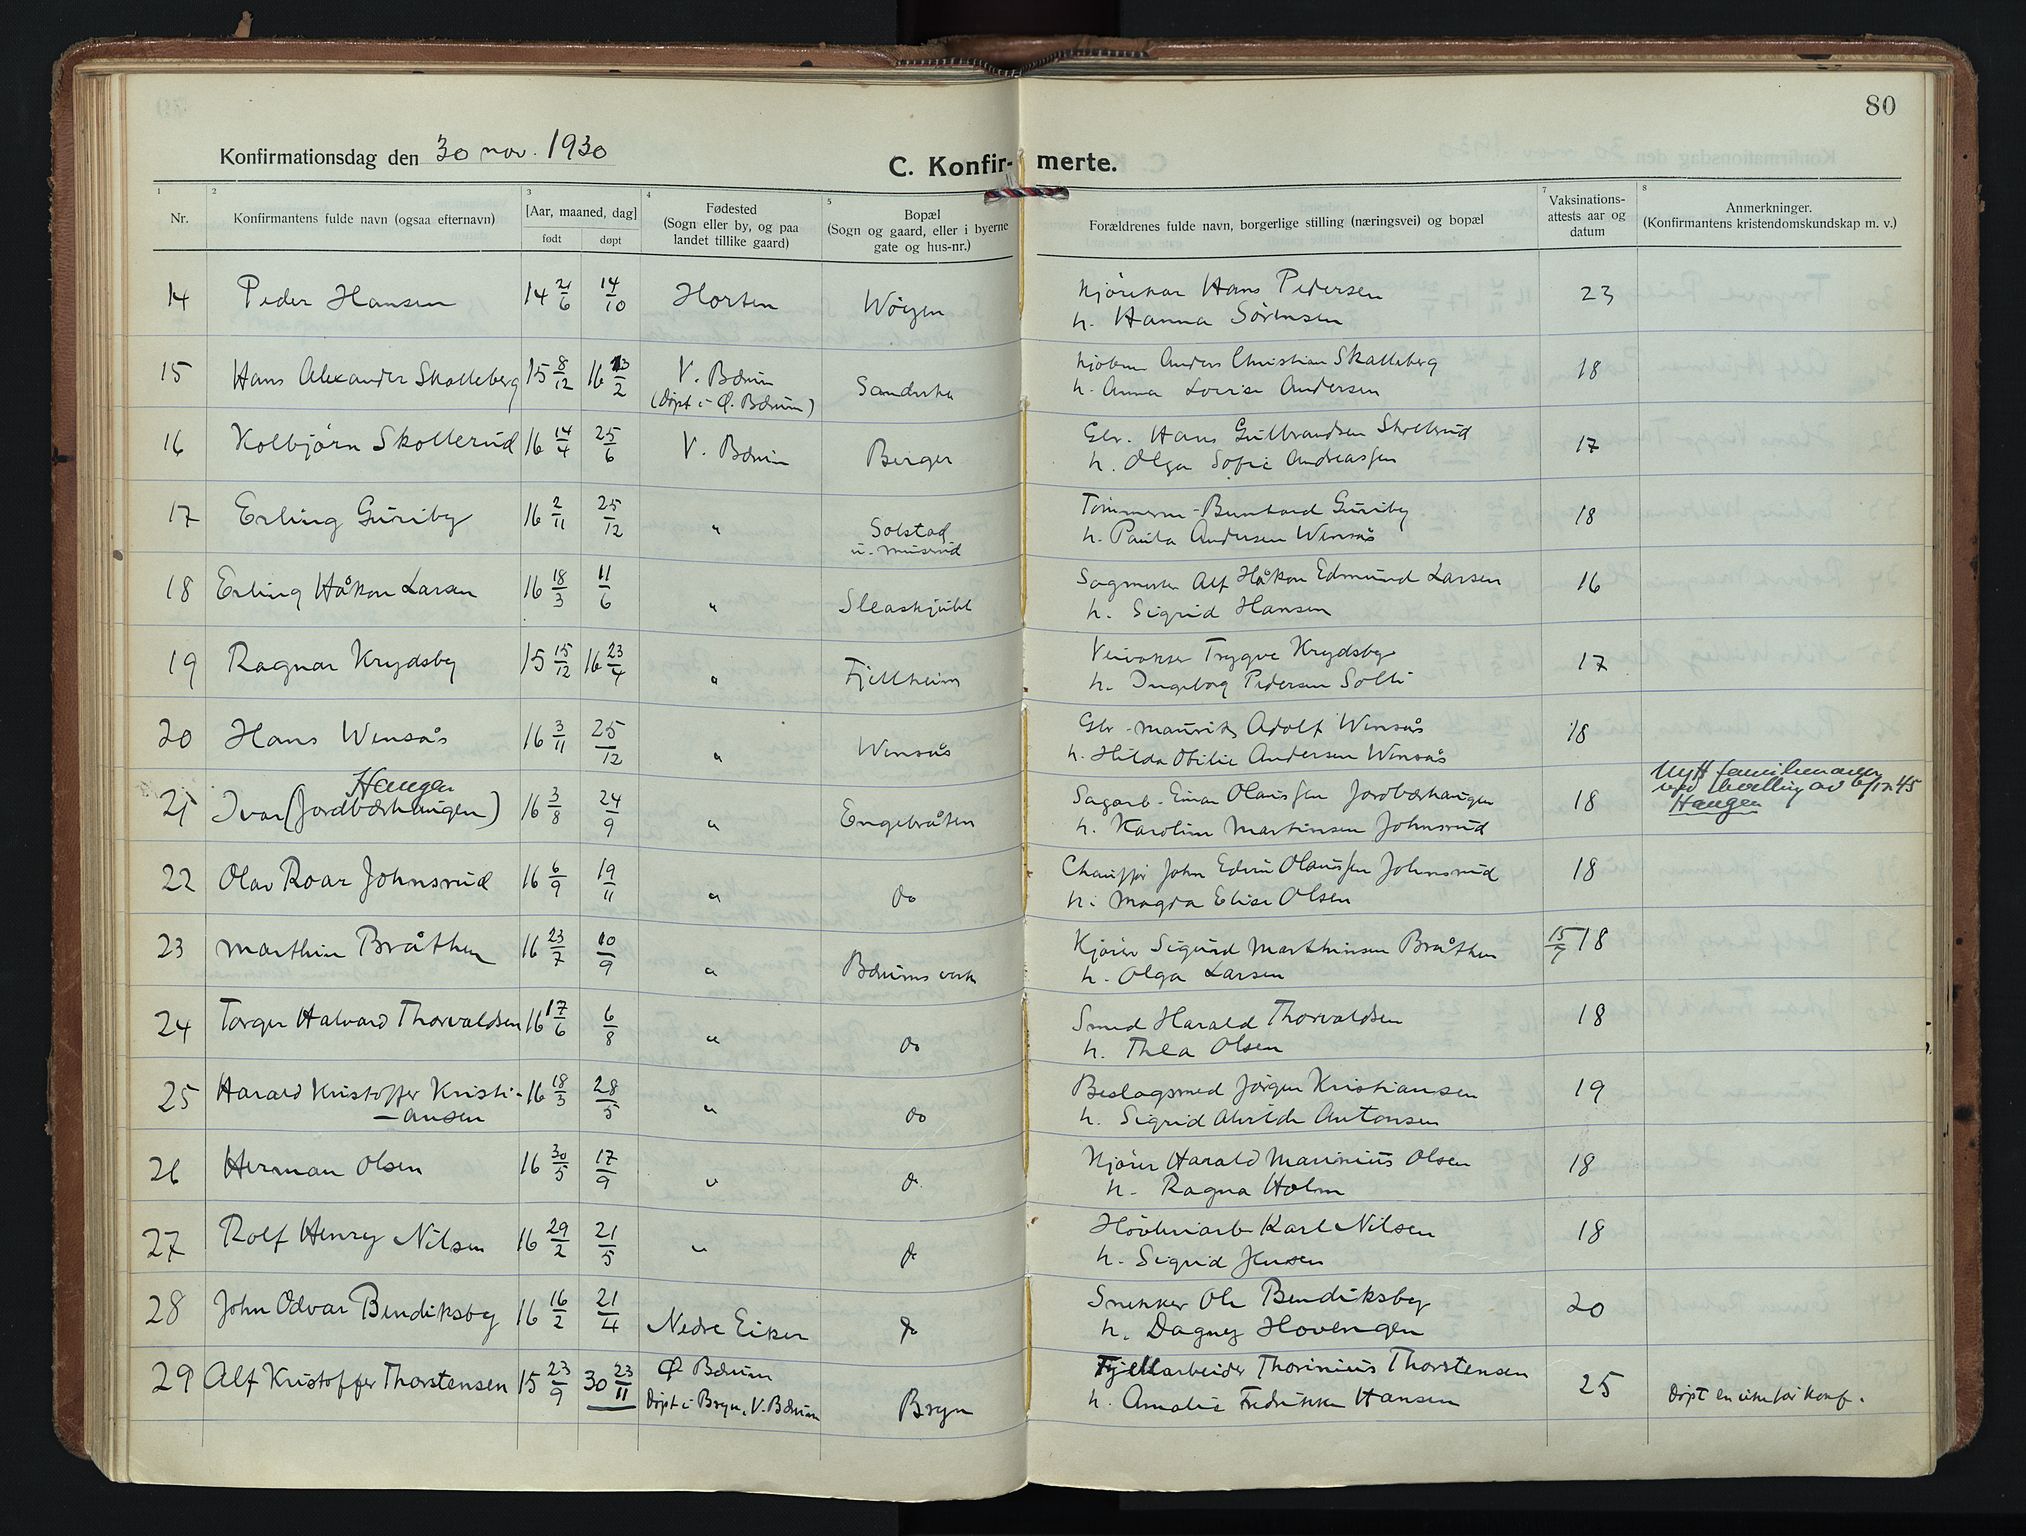 80
Konfirmationsdag den 30 nov. 1930
C. Konfir- merte.
1 2 3 4 5 7 8
Nr. Konfirmantens fulde navn (ogsaa efternavn) [Aar, maaned, dag] født døpt Fødested (Sogn eller by, og paa landet tillike gaard) Bopæl (Sogn og gaard, eller i byerne gate og hus-nr.) Forældrenes fulde navn, borgerlige stilling (næringsvei) og bopæl Vaksinations-attests aar og datum Anmerkninger. (Konfirmantens kristendomskundskap m. v.)
14 Peder Hansen 14 21/6 14/10 Horten Wøyen Kjørekar Hans Pedersen 23
h. Hanna Sørensen
15 Hans Alexander Skalleberg 15 8/12 16 13/2 V. Bærum Anders Christian Skalleberg 18
(døpt i Ø. Bærum) h. Anna Lovise Andersen
16 Kolbjørn Skollerud 16 14/4 25/6 V. Bærum Berger Gbr. Hans Gulbrandsen Skollerud 17
h. Olga Sofie Andreassen
17 Erling Guriby 16 2/11 25/12 " Solstad Tømmerm. Bernhard Guriby 18
u. Musrud h. Paula Andersen Wensås
18 Erling Håkon Larsen 16 18/3 11/6 " Alf Håkon Edmund Larsen 16
h. Sigrid Hansen
19 Ragnar Krydsby 15 15/12 16 23/4 " Fjellheim Veivokter Trygve Krydsby 17
h. Ingeborg Pedersen Solli
20 Hans Wensås 16 3/11 25/12 " Wensås Gbr. Mauritz Adolf Wensås 18
h. Hilda Otilie Andersen Wensås
Haugen
21 Ivar (Jordbærhaugen) 16 3/8 24/9 " Engebråten Sagarb. Einar Olaussen Jordbærhaugen 18 Nytt familienavn
ved bevilling av 6/12 45
Haugen
h. Karoline Martinsen Johnsrud
22 Olav Roar Johnsrud 16 6/9 19/11 " do Chauffør John Edvin Olaussen Johnsrud 18
h. Magda Elise Olsen
23 Marthin Bråthen 16 23/7 10/9 " Bærums verk Kjører Sigurd Marthinsen Bråthen 15/7 18
h. Olga Larsen
24 Torger Halvard Thorvaldsen 16 17/6 6/8 " do Smed Harald Thorvaldsen 18
h. Thea Olsen
25 Harald Kristoffer Kristi- 16 18/3 28/5 " do Beslagsmed Jørgen Kristiansen 19
-ansen h. Sigrid Alvilde Antonsen
26 Herman Olsen 16 30/5 17/9 " do Kjører Harald Marinius Olsen 18
h. Ragna Holm
27 Rolf Henry Nilsen 16 29/2 21/5 " do Høvleriarb. Karl Nilsen 18
h. Sigrid Jensen
28 John Odvar Bendiksby 16 16/2 21/4 Nedre Eiker do Snekker Ole Bendiksby 20
h. Dagny Hovengen
29 Alf Kristoffer Thorstensen 15 23/9 30 23/11 Ø. Bærum Bryn Fjellarbeider Thorinius Thorstensen 25 Døpt en uke før konf.
Døpt i Bryn, V. Bærum h. Amalie Fredrikke Hansen